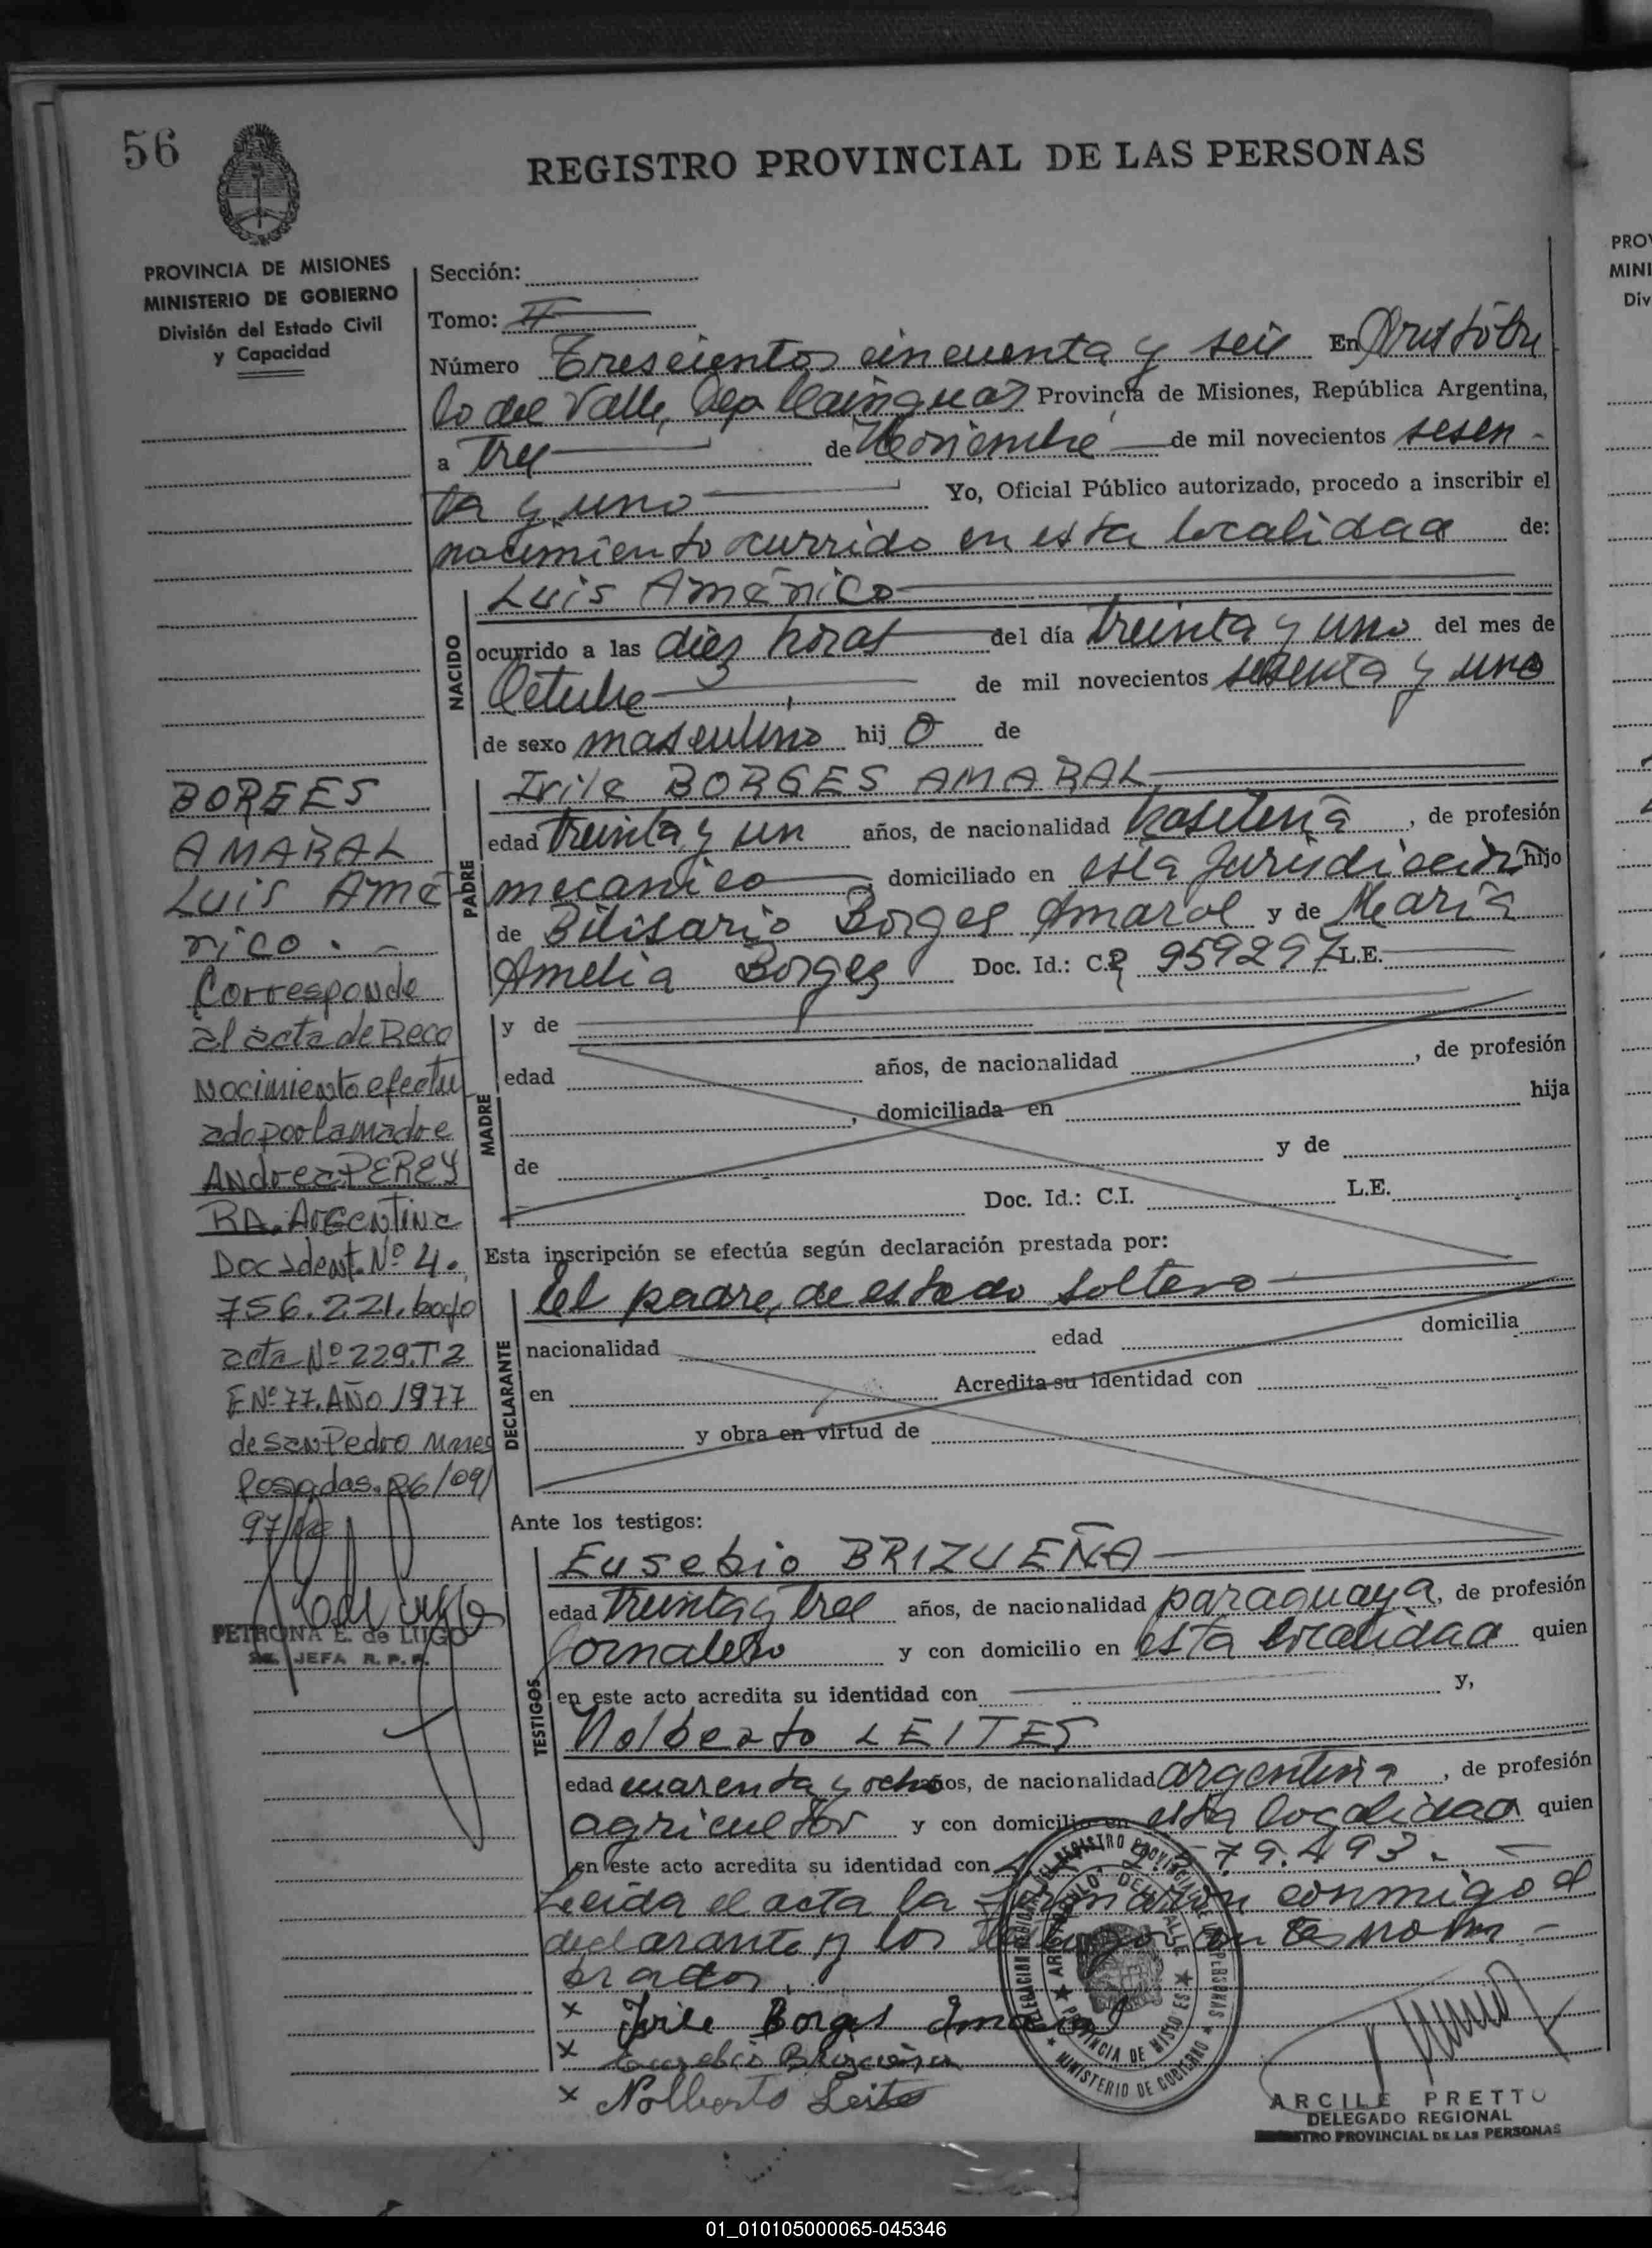 56
REGISTRO PROVINCIAL DE LAS PERSONAS
PROVINCIA DE MISIONES
MINISTERIO DE GOBIERNO
División del Estado Civil
y Capacidad
BORGES
AMARAL
Luis Amé
rico.-
Corresponde
al acta de Reco
Nocimiento efectu
ado por la madre
Andrea PEREY
RA. Argentina
Doc Ident. Nº 4.
756.221. bajo
acta Nº 229. T2
F Nº 77. AÑO 1977
de San Pedro Mnes
Posadas. 26/09/
97
PETRONA E. de LUGO
JEFA R. P. P.
Sección:
Tomo: II
Número Trescientos cincuenta y seis En Aristóbu
lo del Valle, Dep Cainguas Provincia de Misiones, República Argentina,
a tres de Noviembre de mil novecientos sesen-
ta y uno Yo, Oficial Público autorizado, procedo a inscribir el
nacimiento ocurrido en esta localidad de:
NACIDO
Luis Américo
ocurrido a las diez horas del día treinta y uno del mes de
Octubre de mil novecientos sesenta y uno
de sexo masculino hij o de
PADRE
Irile BORGES AMARAL
edad treinta y un años, de nacionalidad brasilera, de profesión
mecanico domiciliado en esta Jurisdicción hijo
de Bilisario Borges Amaral y de María
Amelia Borges Doc. Id.: C.I. 959297 L.E.
MADRE
y de
edad años, de nacionalidad , de profesión
, domiciliada en hija
de y de
Doc. Id.: C.I. L.E.
Esta inscripción se efectúa según declaración prestada por:
DECLARANTE
el padre, de estado soltero
nacionalidad edad domicilia
en Acredita su identidad con
y obra en virtud de
Ante los testigos:
TESTIGOS
Eusebio BRIZUEÑA
edad treinta y tres años, de nacionalidad paraguaya, de profesión
Jornalero y con domicilio en esta localidad quien
en este acto acredita su identidad con y,
Nolberto LEITES
edad cuarenta y ocho años, de nacionalidad argentina, de profesión
agricultor y con domicilio en esta localidad quien
en este acto acredita su identidad con 79.493.-
Leida el acta la firmaron conmigo el
declarante y los testigos nom-
brados.
x Irile Borges Amaral
x Eusebio Brizueña
x Nolberto Leite
DELEGACION REGIONAL DEL REGISTRO PROVINCIAL DE LAS PERSONAS
ARISTOBULO DEL VALLE
PROVINCIA DE MISIONES
MINISTERIO DE GOBIERNO
ARCILE PRETTO
DELEGADO REGIONAL
REGISTRO PROVINCIAL DE LAS PERSONAS
PROV
MINI
Div
01_010105000065-045346